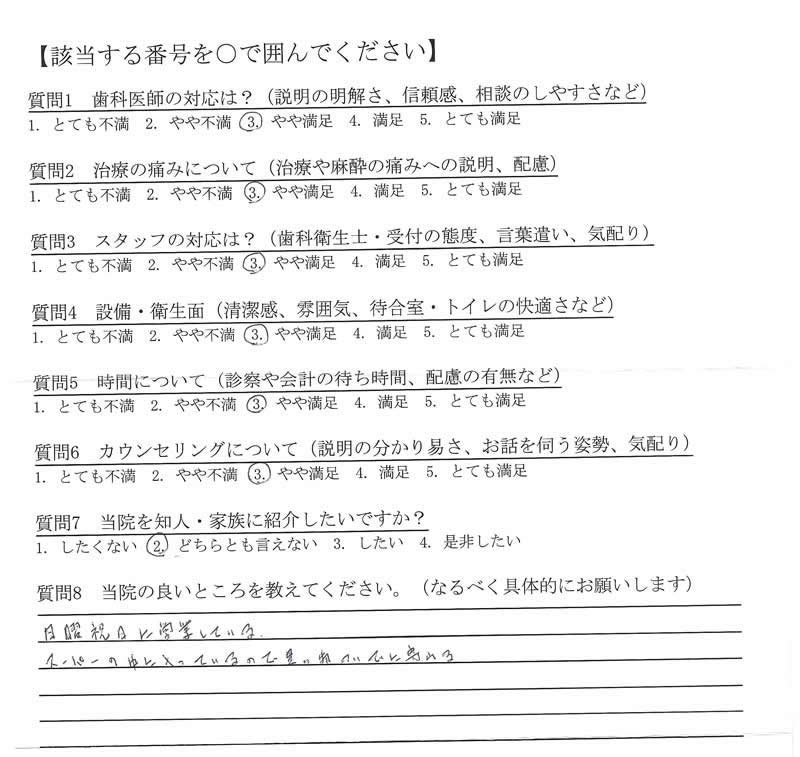 【該当する番号を○で囲んでください】
質問1　歯科医師の対応は？（説明の明解さ、信頼感、相談のしやすさなど）
1. とても不満　2. やや不満　3. やや満足　4. 満足　5. とても満足
質問2　治療の痛みについて（治療や麻酔の痛みへの説明、配慮）
1. とても不満　2. やや不満　3. やや満足　4. 満足　5. とても満足
質問3　スタッフの対応は？（歯科衛生士・受付の態度、言葉遣い、気配り）
1. とても不満　2. やや不満　3. やや満足　4. 満足　5. とても満足
質問4　設備・衛生面（清潔感、雰囲気、待合室・トイレの快適さなど）
1. とても不満　2. やや不満　3. やや満足　4. 満足　5. とても満足
質問5　時間について（診察や会計の待ち時間、配慮の有無など）
1. とても不満　2. やや不満　3. やや満足　4. 満足　5. とても満足
質問6　カウンセリングについて（説明の分かり易さ、お話を伺う姿勢、気配り）
1. とても不満　2. やや不満　3. やや満足　4. 満足　5. とても満足
質問7　当院を知人・家族に紹介したいですか？
1. したくない　2. どちらとも言えない　3. したい　4. 是非したい
質問8　当院の良いところを教えてください。（なるべく具体的にお願いします）
日曜祝日に営業している.
スーパーの中に入っているので買い物ついでに寄れる